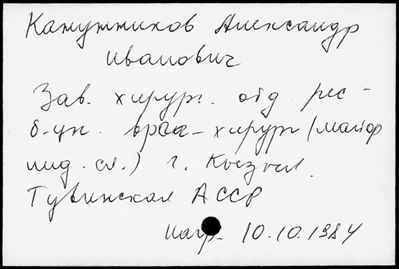 Капутчиков Александр
Иванович
Зав. хирург. отд рес-
б-цы. врач-хирург (майор
мед. сл.) г. Кызыл.
Тувинская АССР
10.10.1984